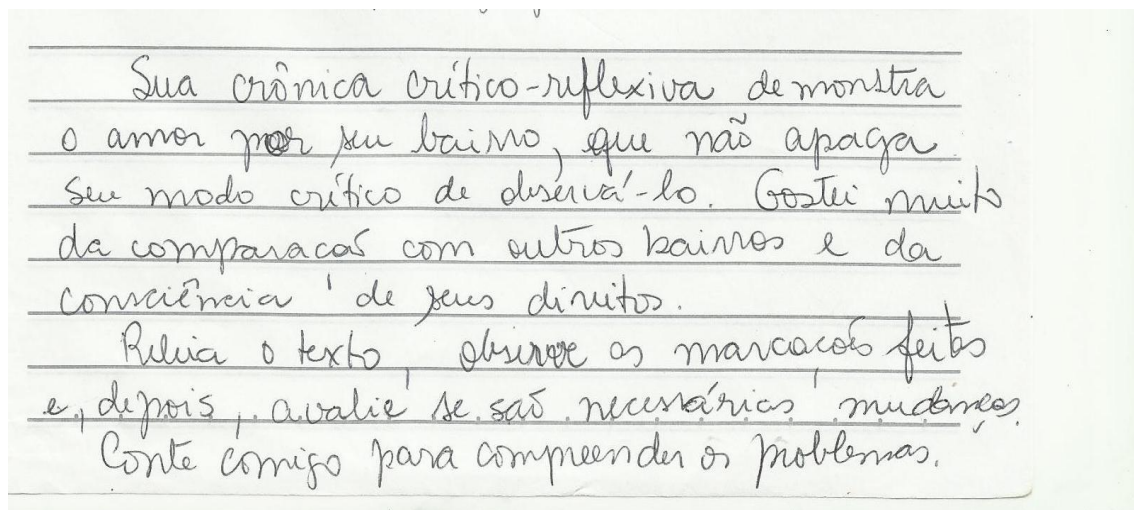 Sua crônica crítico-reflexiva demonstra
o amor por seu bairro, que não apaga
seu modo crítico de observá-lo. Gostei muito
da comparação com outros bairros e da
consciência de seus direitos.
Releia o texto, observe as marcações feitas
e, depois, avalie se são necessárias mudanças.
Conte comigo para compreender os problemas.